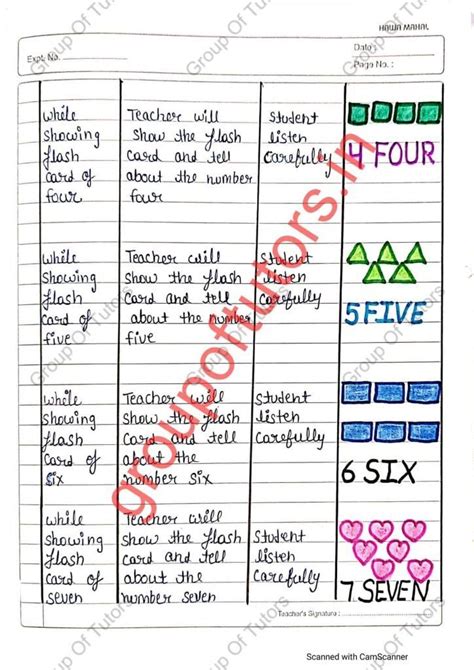 HAWA MAHAL
Date :
Expt. No.
Page No. :
while
showing
flash
card of
four
Teacher will
show the flash
card and tell
about the number
four
Student
listen
carefully
4 FOUR
while
showing
flash
card of
five
Teacher will
show the flash
card and tell
about the number
five
Student
listen
carefully
5 FIVE
while
showing
flash
card of
six
Teacher will
show the flash
card and tell
about the
number six
Student
listen
carefully
6 SIX
while
showing
flash
card of
seven
Teacher will
show the flash
card and tell
about the
number seven
Student
listen
carefully
7 SEVEN
Teacher's Signature :
groupoftutors.in
Group Of Tutors
Group Of Tutors
Group Of Tutors
Group Of Tutors
Group Of Tutors
Group Of Tutors
Scanned with CamScanner